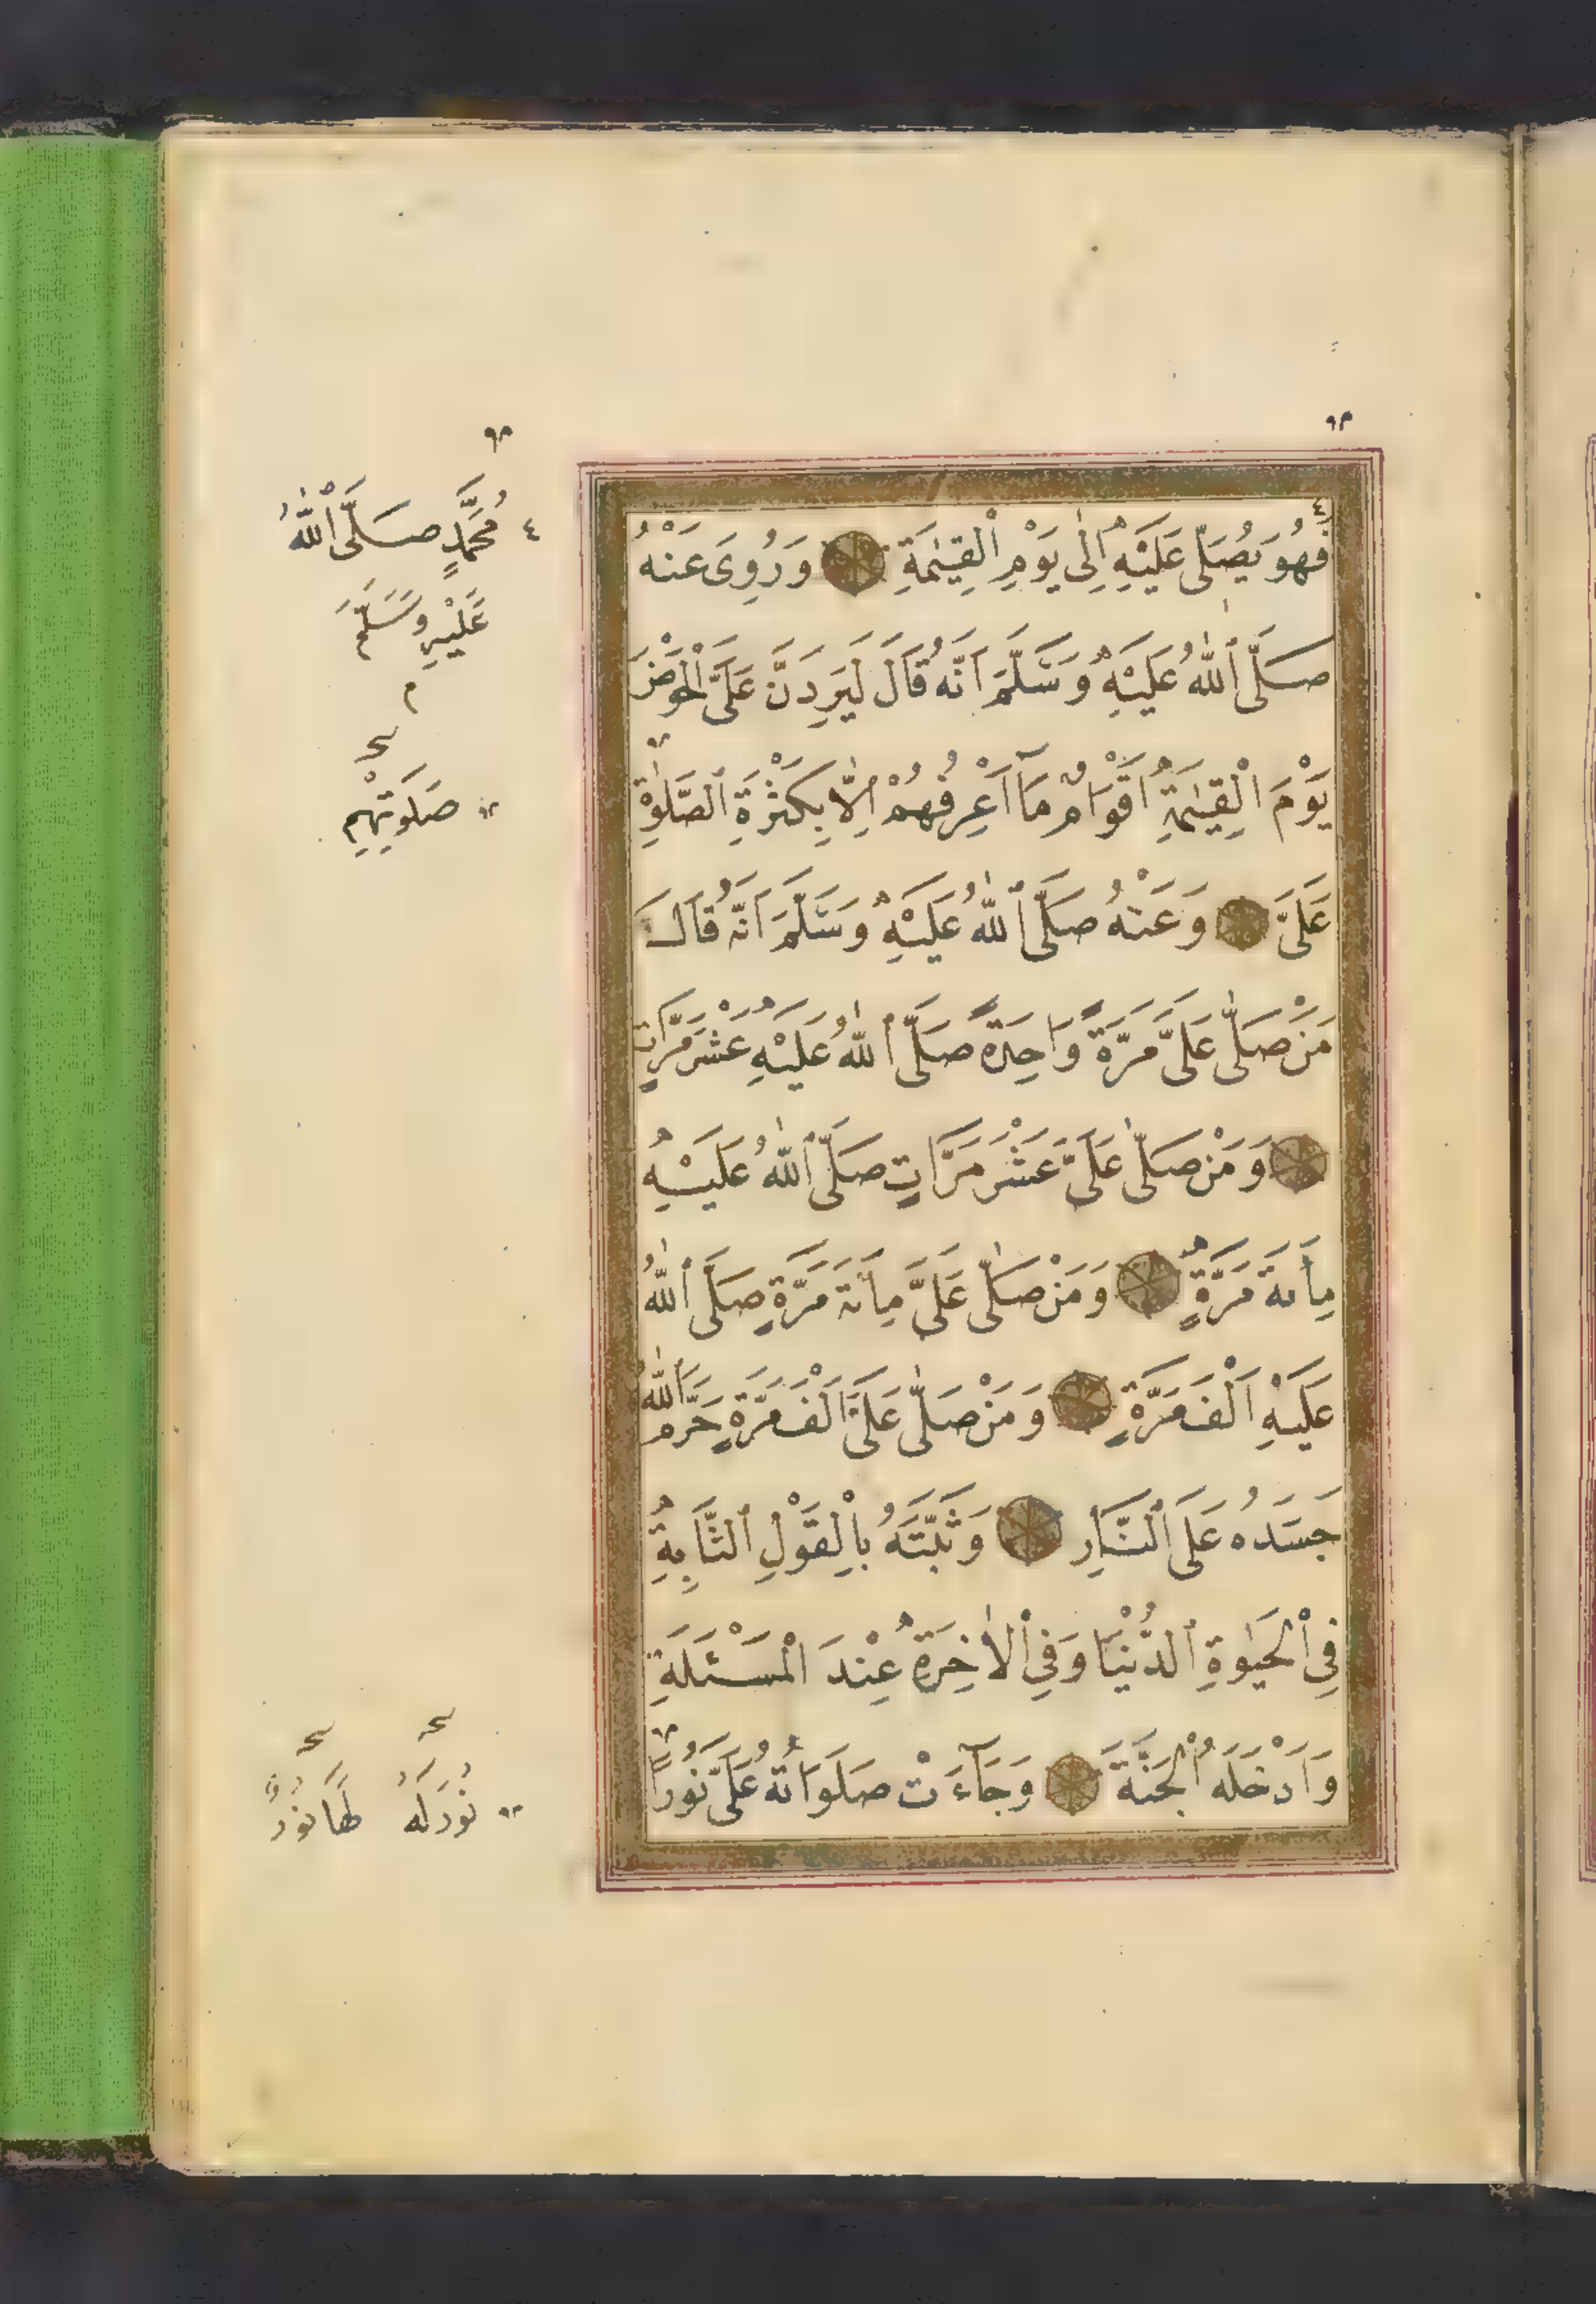 فَهُوَ يُصَلِّى عَلَيْهِ اِلٰى يَوْمِ الْقِيٰمَةِ وَرُوِىَ عَنْهُ
صَلَّى اللّٰهُ عَلَيْهِ وَسَلَّمَ اَنَّهُ قَالَ لَيَرِدَنَّ عَلَىَّ الْحَوْضَ
يَوْمَ الْقِيٰمَةِ اَقْوَامٌ مَآ اَعْرِفُهُمْ اِلَّا بِكَثْرَةِ الصَّلٰوةِ
عَلَىَّ وَعَنْهُ صَلَّى اللّٰهُ عَلَيْهِ وَسَلَّمَ اَنَّهُ قَالَ
مَنْ صَلّٰى عَلَىَّ مَرَّةً وَاحِدَةً صَلَّى اللّٰهُ عَلَيْهِ عَشْرَ مَرَّاتٍ
وَمَنْ صَلّٰى عَلَىَّ عَشْرَ مَرَّاتٍ صَلَّى اللّٰهُ عَلَيْهِ
مِائَةَ مَرَّةٍ وَمَنْ صَلّٰى عَلَىَّ مِائَةَ مَرَّةٍ صَلَّى اللّٰهُ
عَلَيْهِ اَلْفَ مَرَّةٍ وَمَنْ صَلّٰى عَلَىَّ اَلْفَ مَرَّةٍ حَرَّمَ اللّٰهُ
جَسَدَهُ عَلَى النَّارِ وَثَبَّتَهُ بِالْقَوْلِ الثَّابِتِ
فِى الْحَيٰوةِ الدُّنْيَا وَفِى الْاٰخِرَةِ عِنْدَ الْمَسْئَلَةِ
وَاَدْخَلَهُ الْجَنَّةَ وَجَآءَتْ صَلَوَاتُهُ عَلَىَّ نُورًا
٤ مُحَمَّدٍ صَلَّى اللّٰهُ
عَلَيْهِ وَسَلَّمَ
م
صَلَوتِهِمْ
نُورَ لَهُ لَهَا نُورٌ